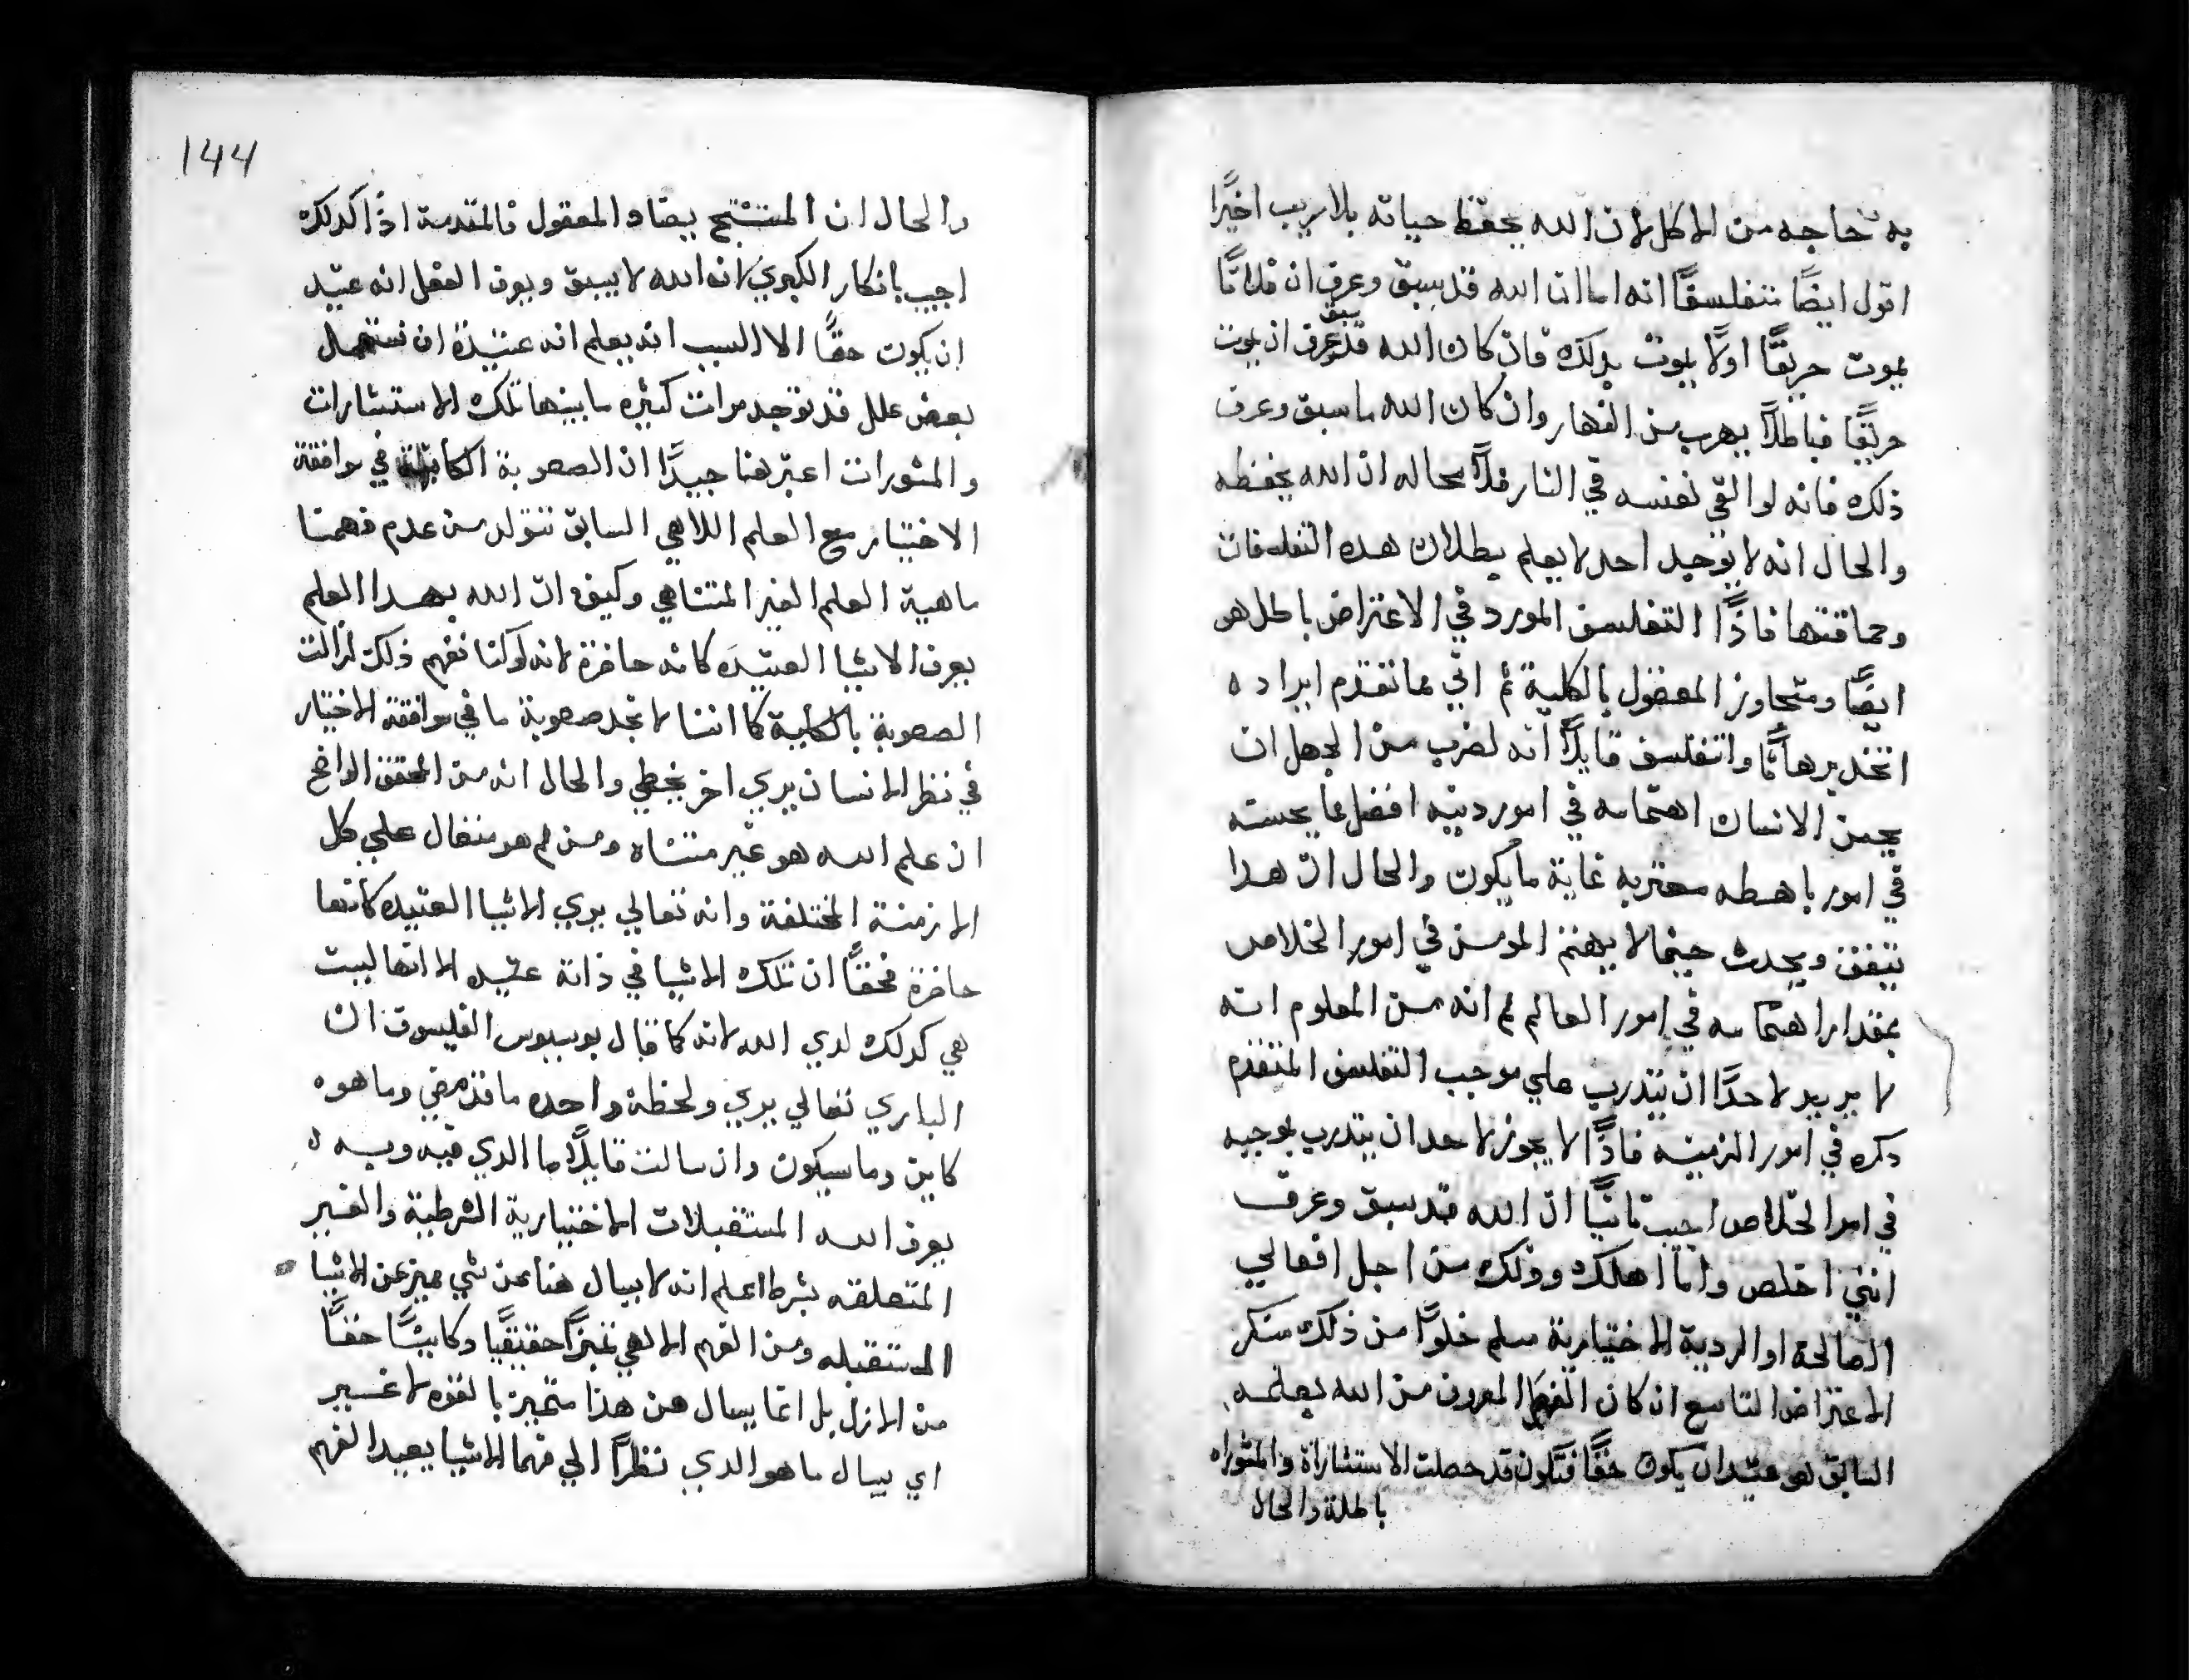 به حاجه من الاكل لان الله يحفظ حياته بلا ريب اخيرًا
اقول ايضًا متفلسفًا انه اما ان الله قد سبق وعرف ان فلانًا
يموت حريقًا اولًا يموت بدلك فان كان الله قد سبق وعرف ان يموت
حريقًا فباطلًا يهرب من النهار وان كان الله ما سبق وعرف
ذلك فانه لو القي نفسه في النار فلا محاله ان الله يحفظه
والحال انه لا يوجد احد لا يعلم بطلان هده التفلسفات
وحماقتها فاذًا التفلسف المورد في الاعتراض باطل هو
ايضًا ومتجاوز المعقول بالكلية ثم اني مما تقدم ايراده
اتخد برهانًا واتفلسف قايلًا انه لضرب من الجهل ان
يحسن الانسان اهتمامه في امور دنيه افضل مما يحسنه
في امور باهظه معتريه غاية ما يكون والحال ان هدا
يتفق ويحدث حينما لا يهتم المومن في امور الخلاص
بمقدار اهتمامه في امور العالم ثم انه من المعلوم انه
لا يريد لاحدًا ان يتدرب علي موجب التفلسف المتقدم
دكره في امور الزمنيه فاذًا لا يجوز لاحد ان يتدرب بوجبه
في امر الخلاص اجيب ثانيًا ان الله قد سبق وعرف
انني اخلص واما اهلك وذلك من اجل افعالي
الصالحة او الردية الاختيارية مسلم خلوًا من ذلك منكر
الاعتراض التاسع ان كان الفهم المعروف من الله بعلمه
السابق هو عتيد ان يكون حقًا فتكون قد حصلت الاستشاراة والمشوراه
باطلة والحال
144
والحال ان المستنتج يضاد المعقول فالمقدمة اذًا كدلك
اجيب بانكار الكبري لانه الله لا يسبق ويعرف الفعل انه عتيد
ان يكون حقًا الا السبب انه يعلم انه عتيدة ان تستعمل
بعض علل قد توجد مرات كثيره ما بينها تلك الاستشارات
والمشورات اعتبر هنا جيدًا ان الصعوبة الكاينة في موافقة
الاختيار مع العلم اللاهي السابق تتولد من عدم فهمنا
ماهية العلم الغير المتناهي وكيف ان الله بهدا العلم
يعرف الاشيا العتيده كانه حاضرة لانه لو كنا نفهم ذلك لزالت
الصعوبة بالكلية كما اننا لا نجد صعوبة ما في موافقة الاختيار
في نظر الانسان يري اخر يخطي والحال انه من المحقق الواضح
ان علم الله هو غير متناه ومن ثم هو متعال علي كل
الازمنة المختلفة وانه تعالي يري الاشيا العتيده كانها
حاضرة فحقًا ان تلك الاشيا في ذاته عتيده الا انها ليست
هي كدلك لدي الله لانه كما قال بوسيوس الفليسوف ان
الباري تعالي يري ولحظة واحده ما قد مضي وما هوه
كاين وما سيكون وان سالت قايلًا ما الدي فيه وبه
يعرف الله المستقبلات الاختيارية الشرطية والغير
المتعلقه بشرط اعلم انه لا يسال هنا عن شي مميز عن الاشيا
المستقبله ومن الفهم الالهي تميزًا حقيقيًا وكاينًا حقًا
من الازل بل انما يسال عن هذا متميز بالقوه لا غير
اي يسال ما هو الدي نظرًا الي فهما الاشيا يعيد الفهم